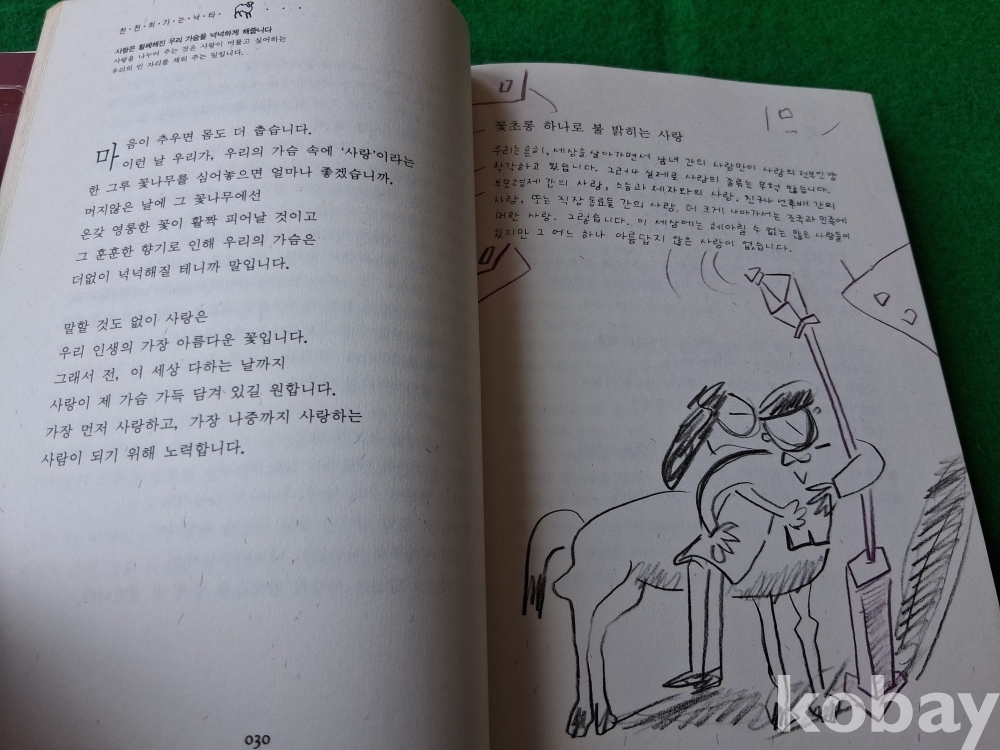 천·천·히·가·는·낙·타·
사랑은 황폐해진 우리 가슴을 넉넉하게 해줍니다
사랑을 나누어 주는 것은 사랑이 머물고 싶어하는
우리의 빈 자리를 채워 주는 일입니다.
마음이 추우면 몸도 더 춥습니다.
이런 날 우리가, 우리의 가슴 속에 '사랑'이라는
한 그루 꽃나무를 심어놓으면 얼마나 좋겠습니까.
머지않은 날에 그 꽃나무에선
온갖 영롱한 꽃이 활짝 피어날 것이고
그 훈훈한 향기로 인해 우리의 가슴은
더없이 넉넉해질 테니까 말입니다.
말할 것도 없이 사랑은
우리 인생의 가장 아름다운 꽃입니다.
그래서 전, 이 세상 다하는 날까지
사랑이 제 가슴 가득 담겨 있길 원합니다.
가장 먼저 사랑하고, 가장 나중까지 사랑하는
사람이 되기 위해 노력합니다.
030
꽃초롱 하나로 불 밝히는 사랑
우리는 흔히, 세상을 살아가면서 남녀 간의 사랑만이 사랑의 전부인 양
착각하고 있습니다. 그러나 실제로 사랑의 종류는 무척 많습니다.
부모형제 간의 사랑, 스승과 제자와의 사랑, 친구나 선후배 간의
사랑, 또는 직장 동료들 간의 사랑. 더 크게 나아가서는 조국과 민족에
대한 사랑. 그렇습니다. 이 세상에는 헤아릴 수 없는 많은 사랑들이
있지만 그 어느 하나 아름답지 않은 사랑이 없습니다.
kobay